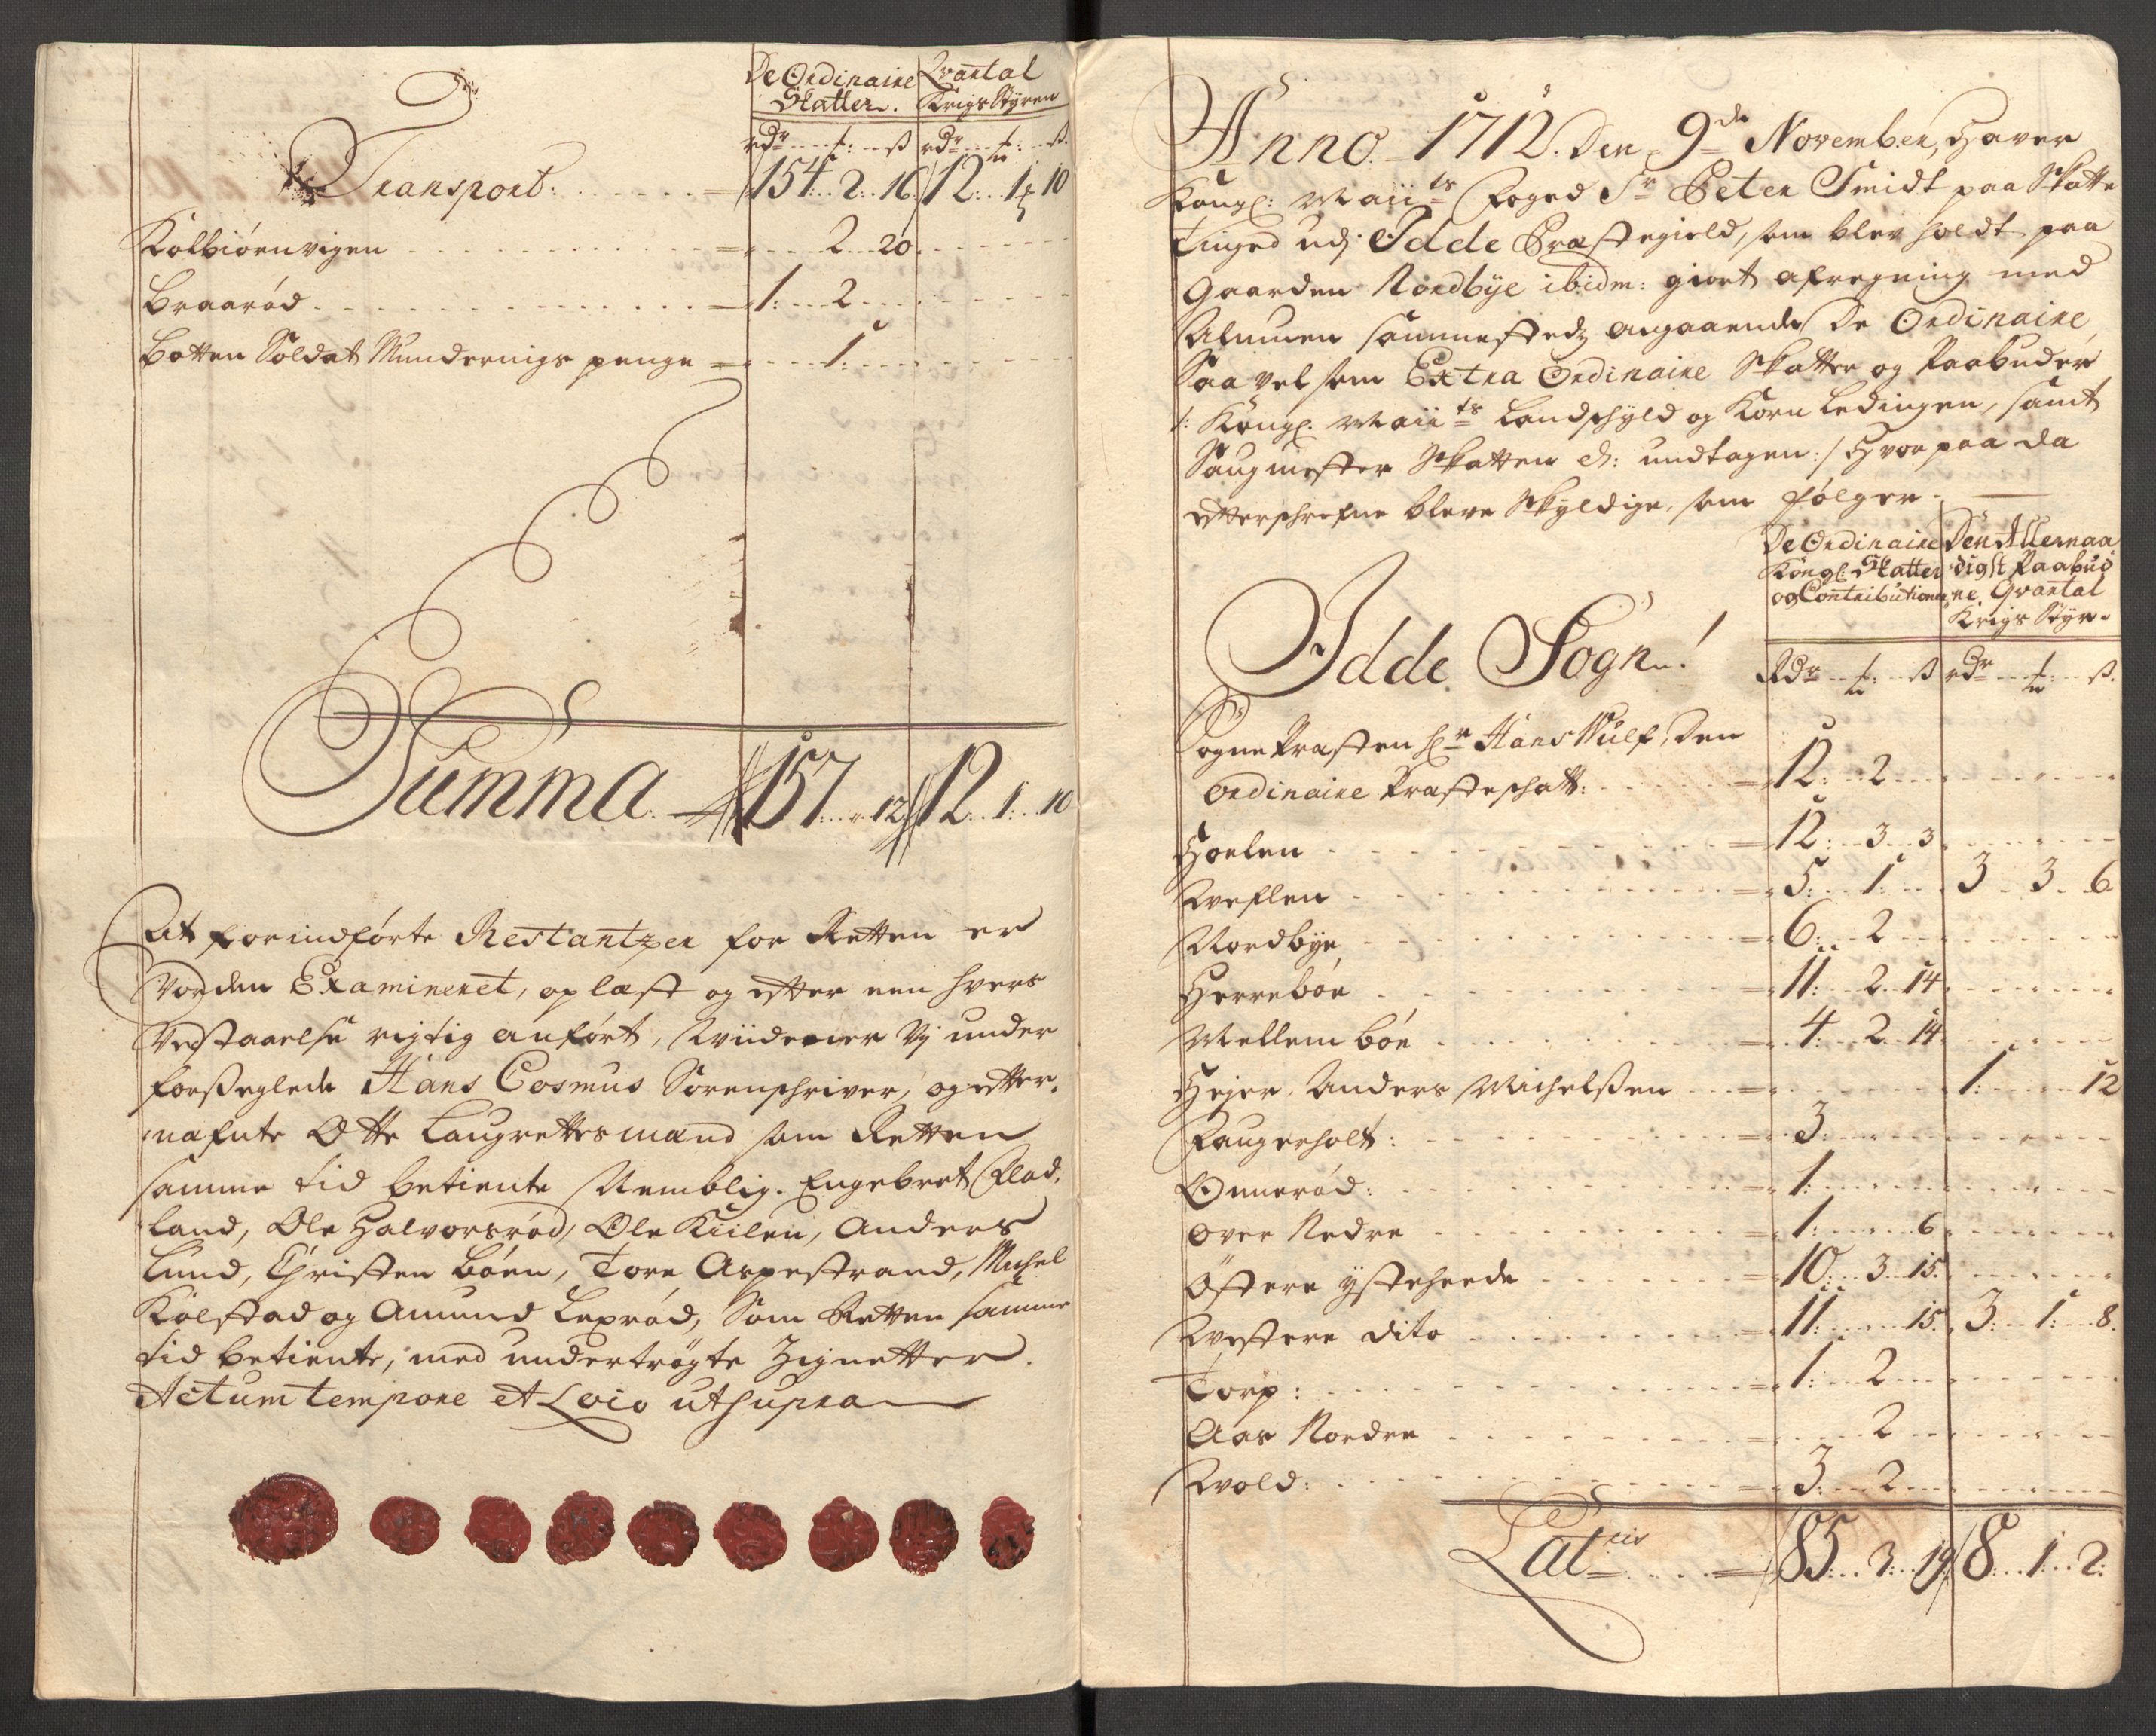 De Ordinaire Qvantal
Skatter. Krigs Styren
rdr f: ß rdr f: ß.
Transport: 154: 2: 16 12: 1: 10
Kolbiørnvigen 2: 20
Braarød 1: 2
Botten Soldat Munderings penge 1:
Summa 157: " 12 12: 1: 10
At forindførte Restantzer for Retten er
Vorden Examineret, oplæst og efter een hvers
Vestaaelse rigtig anført, Vj under
forseglede Hans Cosmus Sorenschriver, og efter-
nafnte Otte Laugrettesmænd som Retten
samme tid betiente Nemblig. Engebret Flad-
land, Ole Halvorsrød, Ole Kiilen, Anders
Lund, Christen Böen, Tore Aspestrand, Michel
Kolstad og Amund Leprød, Som Retten samme
tid betiente, med undertrögte Zignetter.
Actum tempore et Loco ut supra
Anno 1712. den 9de November, Haver
Kongl: Maiits Foged Sr Peter Smidt paa Skatte
Tinged udj Idde Præstegield, som blev holdt paa
Gaarden Nordbye ibidm: giort afregning med
Almuen sammestedz angaaende De Ordinaire
Saa vel som Extra Ordinaire Skatter og Paabuder
/: Kongl. Maiits Landschyld og Korn Ledingen, samt
Saugmester Skatten undtagen :/ Hvorpaa da
efterschrefne bleve Skyldige, som følger.
De Ordinaire Den Allernaa
Kongl: Skatter digst Paabud
og Contributioner ne Qvantal
Krigs Styr.
Idde Sogn.!
Rdr f: ß rdr f: ß.
Sogne Præsten Hr Hans Wulf, den
Ordinaire Præsteschatt: 12: 2
Hoelen 12: 3: 3
Weflen 5: 1: 3: 3: 6
Nordbye 6: 2
Herrebøe 11: 2: 14
Mellem bøe 4: 2: 14
Hejer Anders Michelßen 1: 12
Faugerholt: 3:
Onnerød: 1:
Over Nedre 1: 6
Östere ysteheede 10: 3: 15
Westere dito 11: 15 3: 1: 8
Torp: 1: 2
Aas Nordre 2
Wold: 3: 2
Latris 85: 3: 19 8: 1: 2: